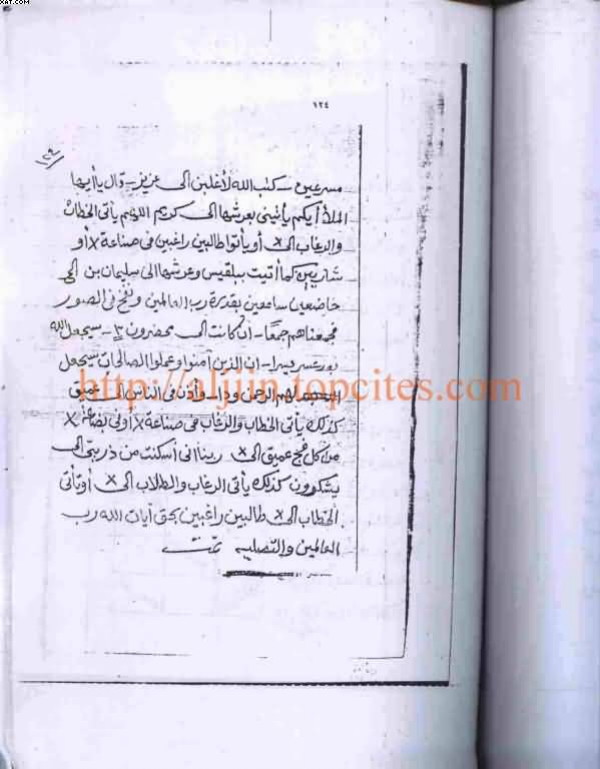 XAT.COM
١٢٤
١٢٩
مسرعين — كتب الله لأغلبن الى عزيز — قال يا أيها
الملأ أيكم يأتيني بعرشها الى كريم اللهم يأتي الخطاب
والرغاب الى x أو يأتوا طالبين راغبين في صناعة x أو
شاربين كما أتيت ببلقيس وعرشها الى سليمان بن الى
خاضعين سامعين بقدرة رب العالمين ونفخ في الصور
فجمعناهم جمعا — ان كانت الى محضرون — سيجعل الله
بعد عسر يسرا — ان الذين آمنوا وعملوا الصالحات سيجعل
لهم الرحمن ودا — وأذن في الناس الى عميق
http://aljjin.topcites.com
كذلك يأتي الخطاب والرغاب في صناعة x أو في بضاعة x
من كل فج عميق الى x ربنا اني أسكنت من ذريتي الى
يشكرون كذلك يأتي الرغاب والطلاب الى x أو تأتي
الخطاب الى x طالبين راغبين بحق آيات الله رب
العالمين والتصلية تمت